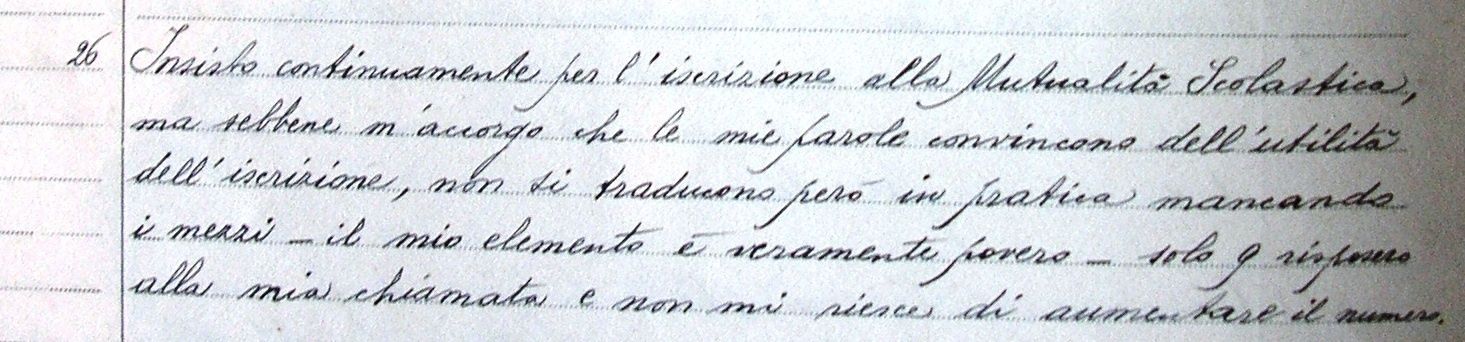 26 Insisto continuamente per l'iscrizione alla Mutualità Scolastica,
ma sebbene m'accorgo che le mie parole convincono dell'utilità
dell'iscrizione, non si traducono però in pratica mancando
i mezzi - il mio elemento è veramente povero - solo 9 risposero
alla mia chiamata e non mi riesce di aumentare il numero.